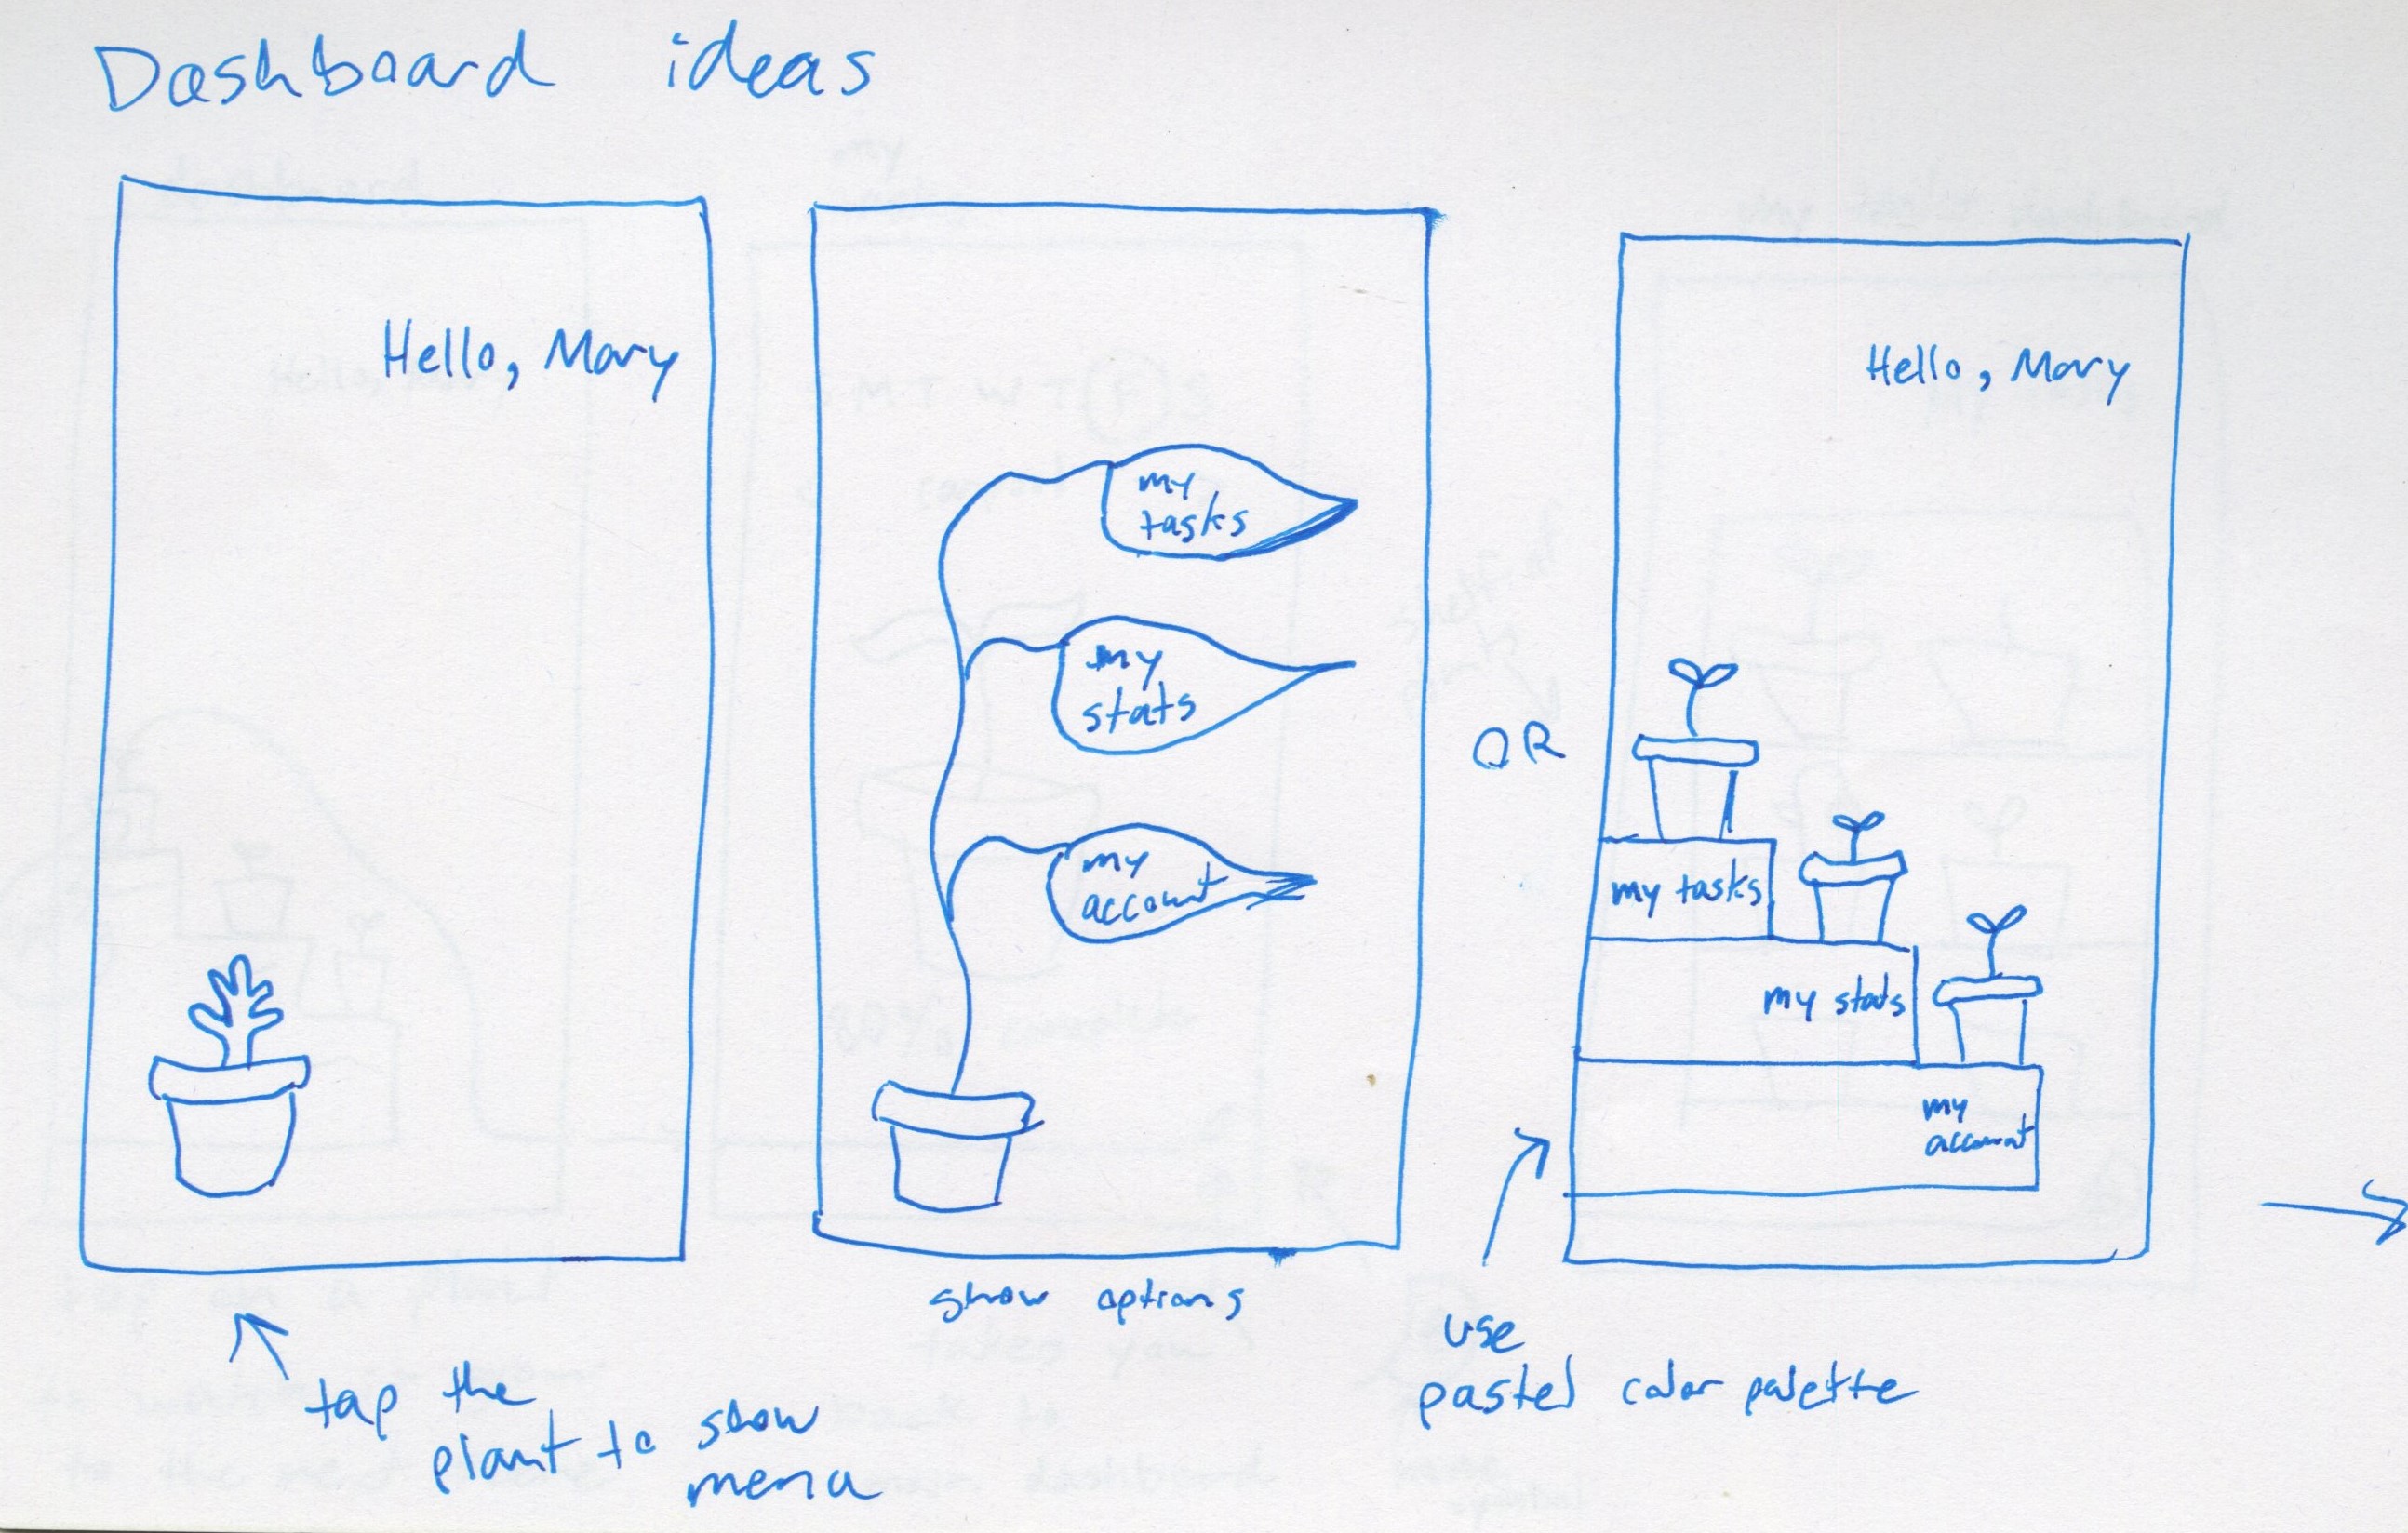 Dashboard ideas
Hello, Mary
tap the
plant to show
menu
my
tasks
my
stats
my
account
show options
OR
Hello, Mary
my tasks
my stats
my
account
use
pastel color palette